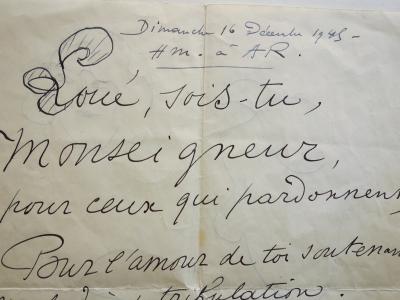 Dimanche 16 Décembre 1945 -
HM. à AR.
Loué, sois-tu,
Monseigneur,
pour ceux qui pardonnent
Pour l'amour de toi soutenan
tribulation.